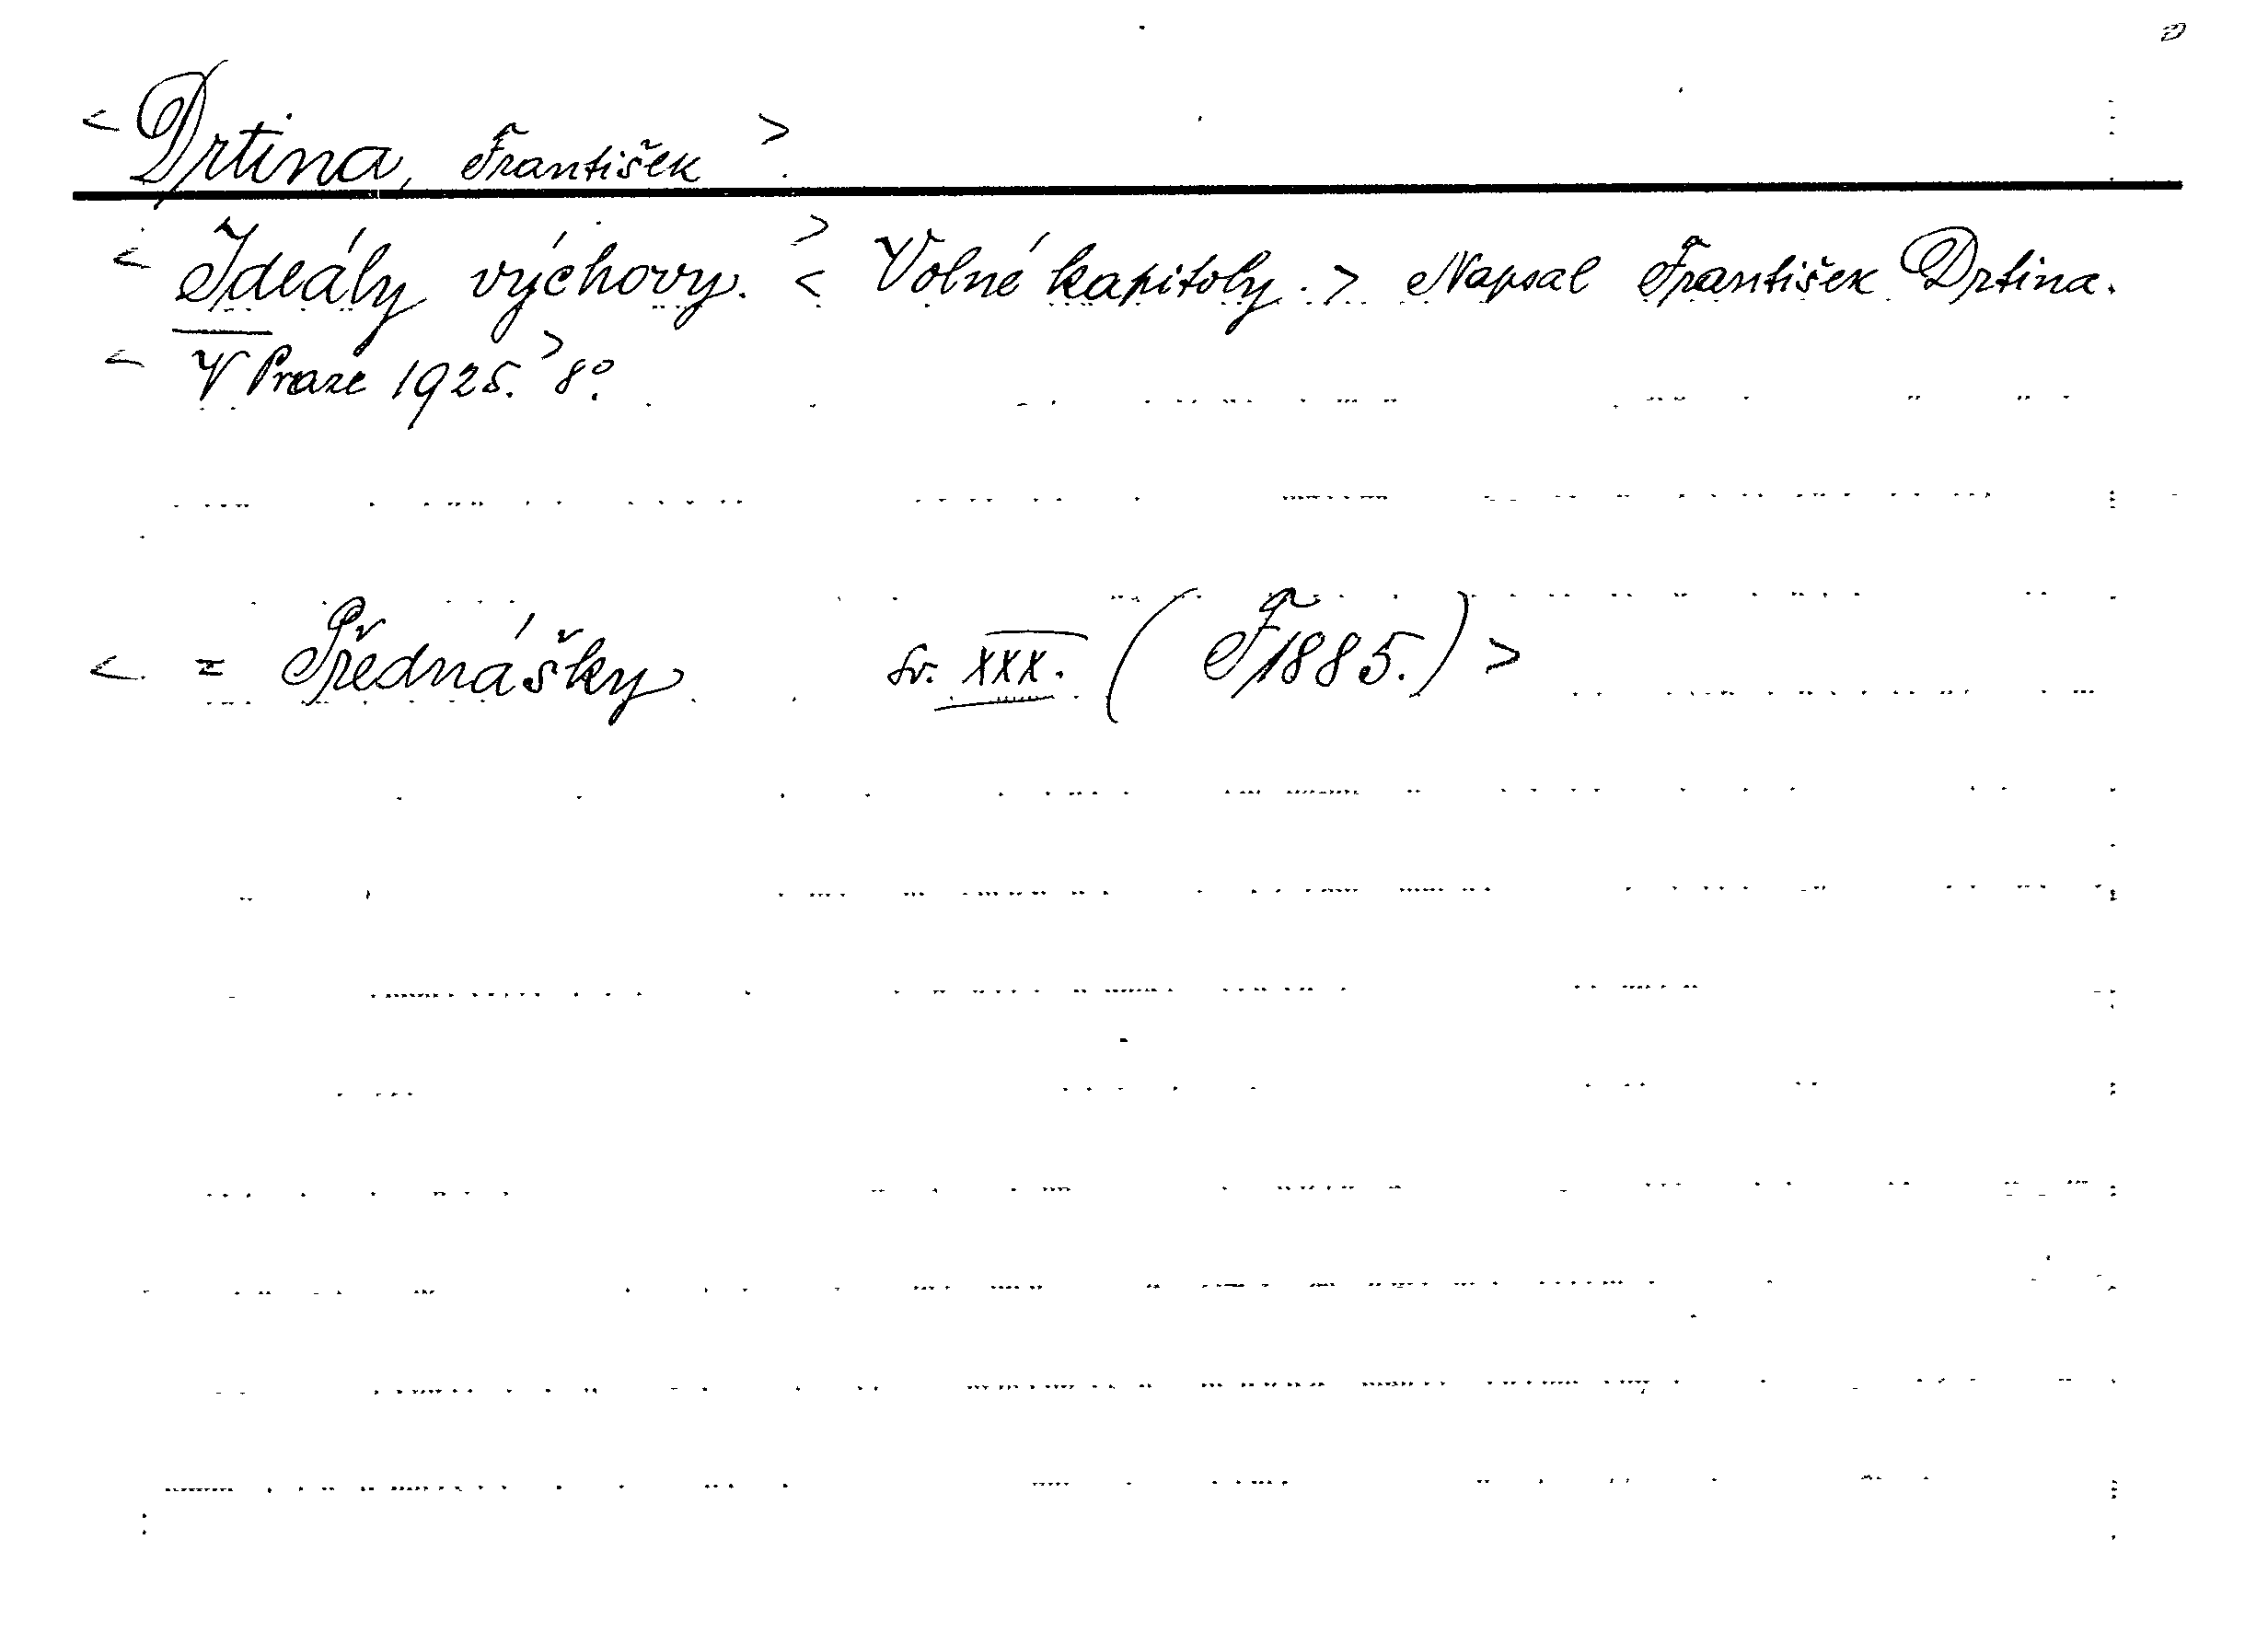 < Drtina, František >.
< Ideály výchovy. > < Volné kapitoly. > Napsal František Drtina.
< V Praze 1925. > 8°.
< = Přednášky sv. XXX. ( F 1885.) >